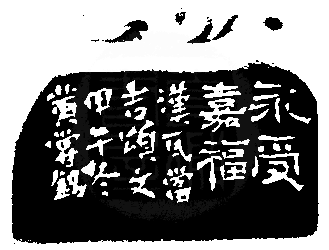 永受
嘉福
漢瓦當
吉頌文
甲午冬
黃嘗銘